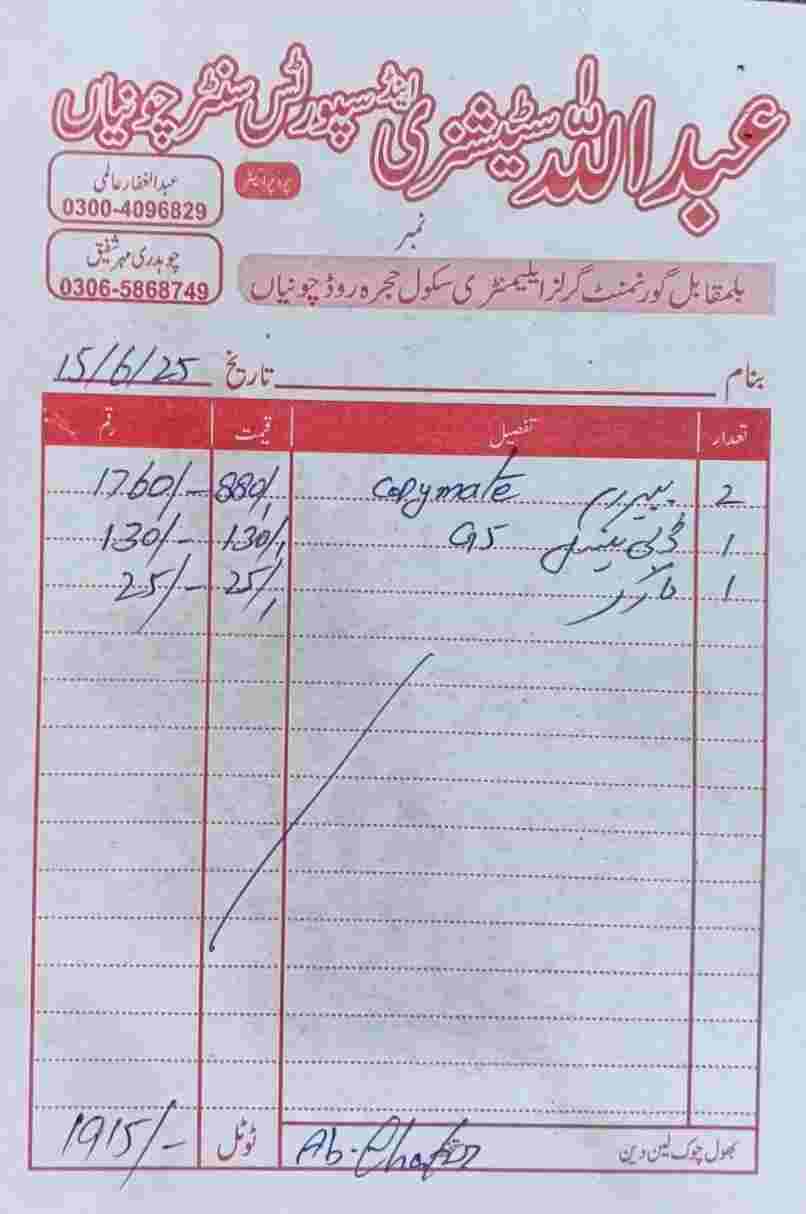 عبداللہ سٹیشنری اینڈ سپورٹس سنٹر چونیاں
پروپرائیٹر
عبدالغفار عالمی
0300-4096829
چوہدری مہر شفیق
0306-5868749
نمبر
بلمقابل گورنمنٹ گرلز ایلیمنٹری سکول حجرہ روڈ چونیاں
بنام تاریخ 15/6/25
تعداد تفصیل قیمت رقم
2 پیپر رم Copymate 880/- 1760/-
1 G5 130/- 130/-
1 مارکر 25/- 25/-
بھول چوک لین دین Ab-Ghafar ٹوٹل 1915/-